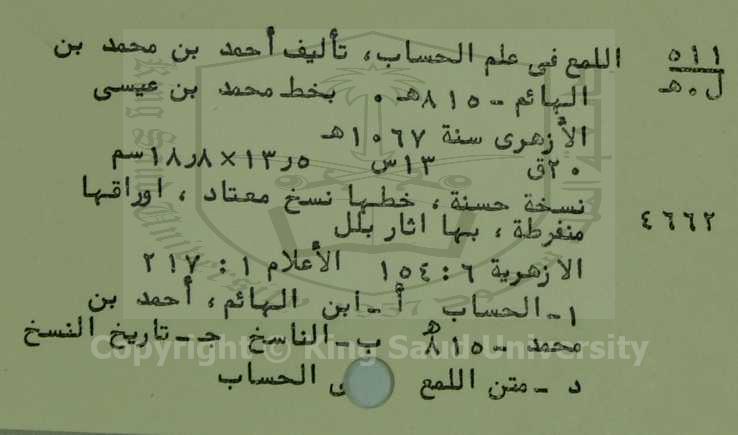 ٥١١ اللمع فى علم الحساب، تأليف أحمد بن محمد بن
ل ٠ هـ الهائم - ٨١٥هـ ٠ بخط محمد بن عيسى
الأزهرى سنة ١٠٦٧هـ
٢٠ق ١٣س ١٣٫٥×١٨٫٨سم
نسخة حسنة ، خطها نسخ معتاد ، اوراقها
٤٦٦٢ منفرطة ، بها اثار بلل
الازهرية ٦ : ١٥٤ الأعلام ١ : ٢١٧
١ـ الحساب أ ـ ابن الهائم، أحمد بن
محمد - ٨١٥هـ ب ـ الناسخ جـ ـ تاريخ النسخ
د ـ متن اللمع ى الحساب
Copyright © King Saud University